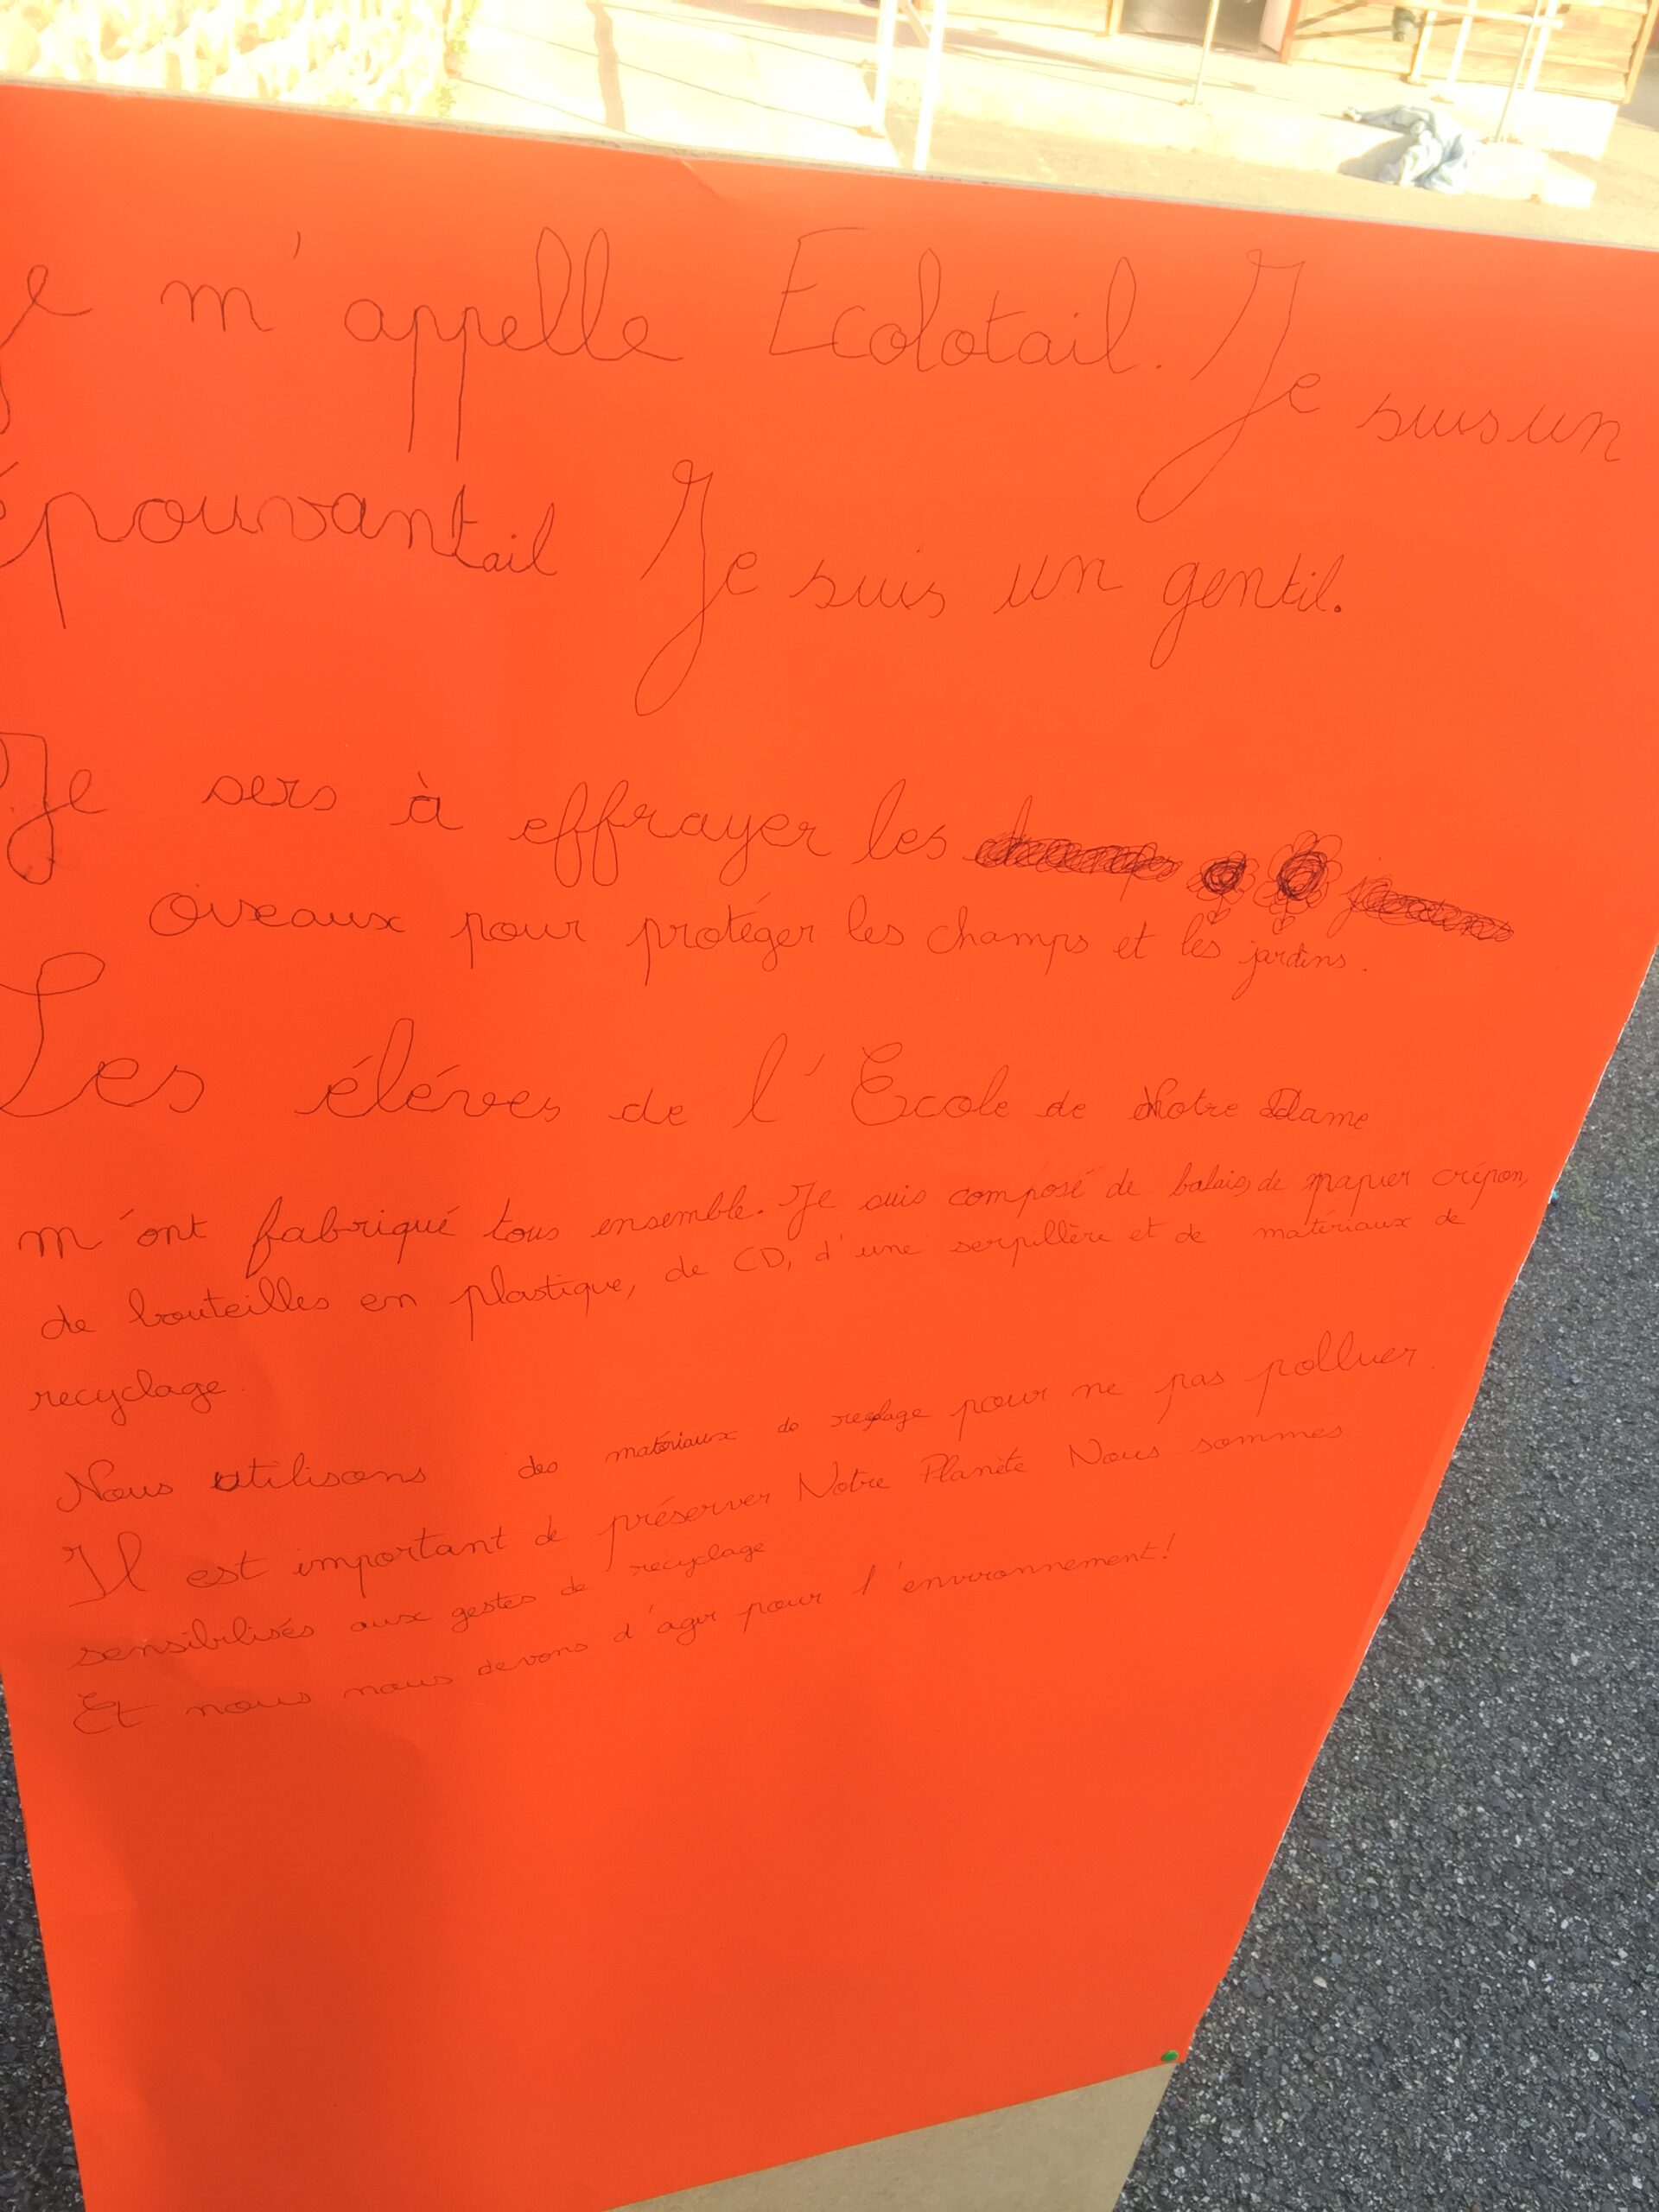 Je m'appelle Ecolotail. Je suis un
épouvantail Je suis un gentil.
Je sers à effrayer les
oiseaux pour protéger les champs et les jardins.
Les éléves de l'Ecole de Notre Dame
m'ont fabriqué tous ensemble. Je suis composé de balais, de papier crépon,
de bouteilles en plastique, de CD, d'une serpillère et de matériaux de
recyclage.
Nous utilisons des matériaux de pour ne pas polluer.
Il est important de préserver Notre Planète Nous sommes
sensibilisés aux gestes de recyclage
Et nous nous devons d'agir pour l'environnement!